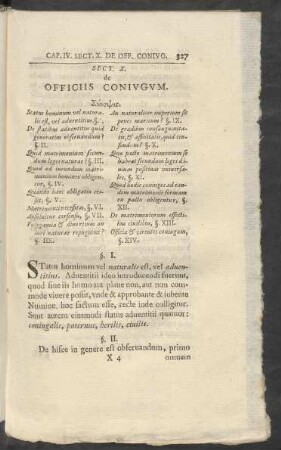 CAP. IV. SECT. X. DE OFF. CONIVG. 327
SECT. X.
de
OFFICIIS CONIVGVM.
Σύνοψις.
Status hominum vel natura-
lis est, vel adventitius. §. I.
De statibus adventitiis quid
generatim observandum?
§. II.
Quid matrimonium secun-
dum leges naturae? §. III.
Quid ad ineundum matri-
monium homines obliget,
§. IV.
Quando haec obligatio cesset,
§. V.
Matrimonii necessitas, §. VI.
dissolutio §. VII.
Polygamia & divortium an
iuri naturae repugnent?
§. IIX.
An naturalium imperium su-
peret maritum? §. IX.
De gradibus consanguinita-
tis, & affinitatis, quid cen-
sendum? §. X.
Quo pacto matrimonium se
habeat secundum leges di-
vinas positivas universa-
les, §. XI.
Quid hodie coniuges ad ean-
dem matrimonii formam
ex pacto obligentur, §.
XII.
De matrimoniorum
civilibus, §. XIII.
Officia & coniugum,
§. XIV.
§. I.
STatus hominum vel naturalis est, vel adven-
titius. Adventitii ideo introducendi fuerunt,
quod sine iis homo aut plane non, aut non com-
mode vivere possit, unde & approbante & iubente
Numine, hoc factum esse, recte inde colligitur.
Sunt autem eiusmodi status adventitii quatuor:
coniugalis, paternus, herilis, civilis.
§. II.
De hisce in genere est observandum, primo
X 4 omnem